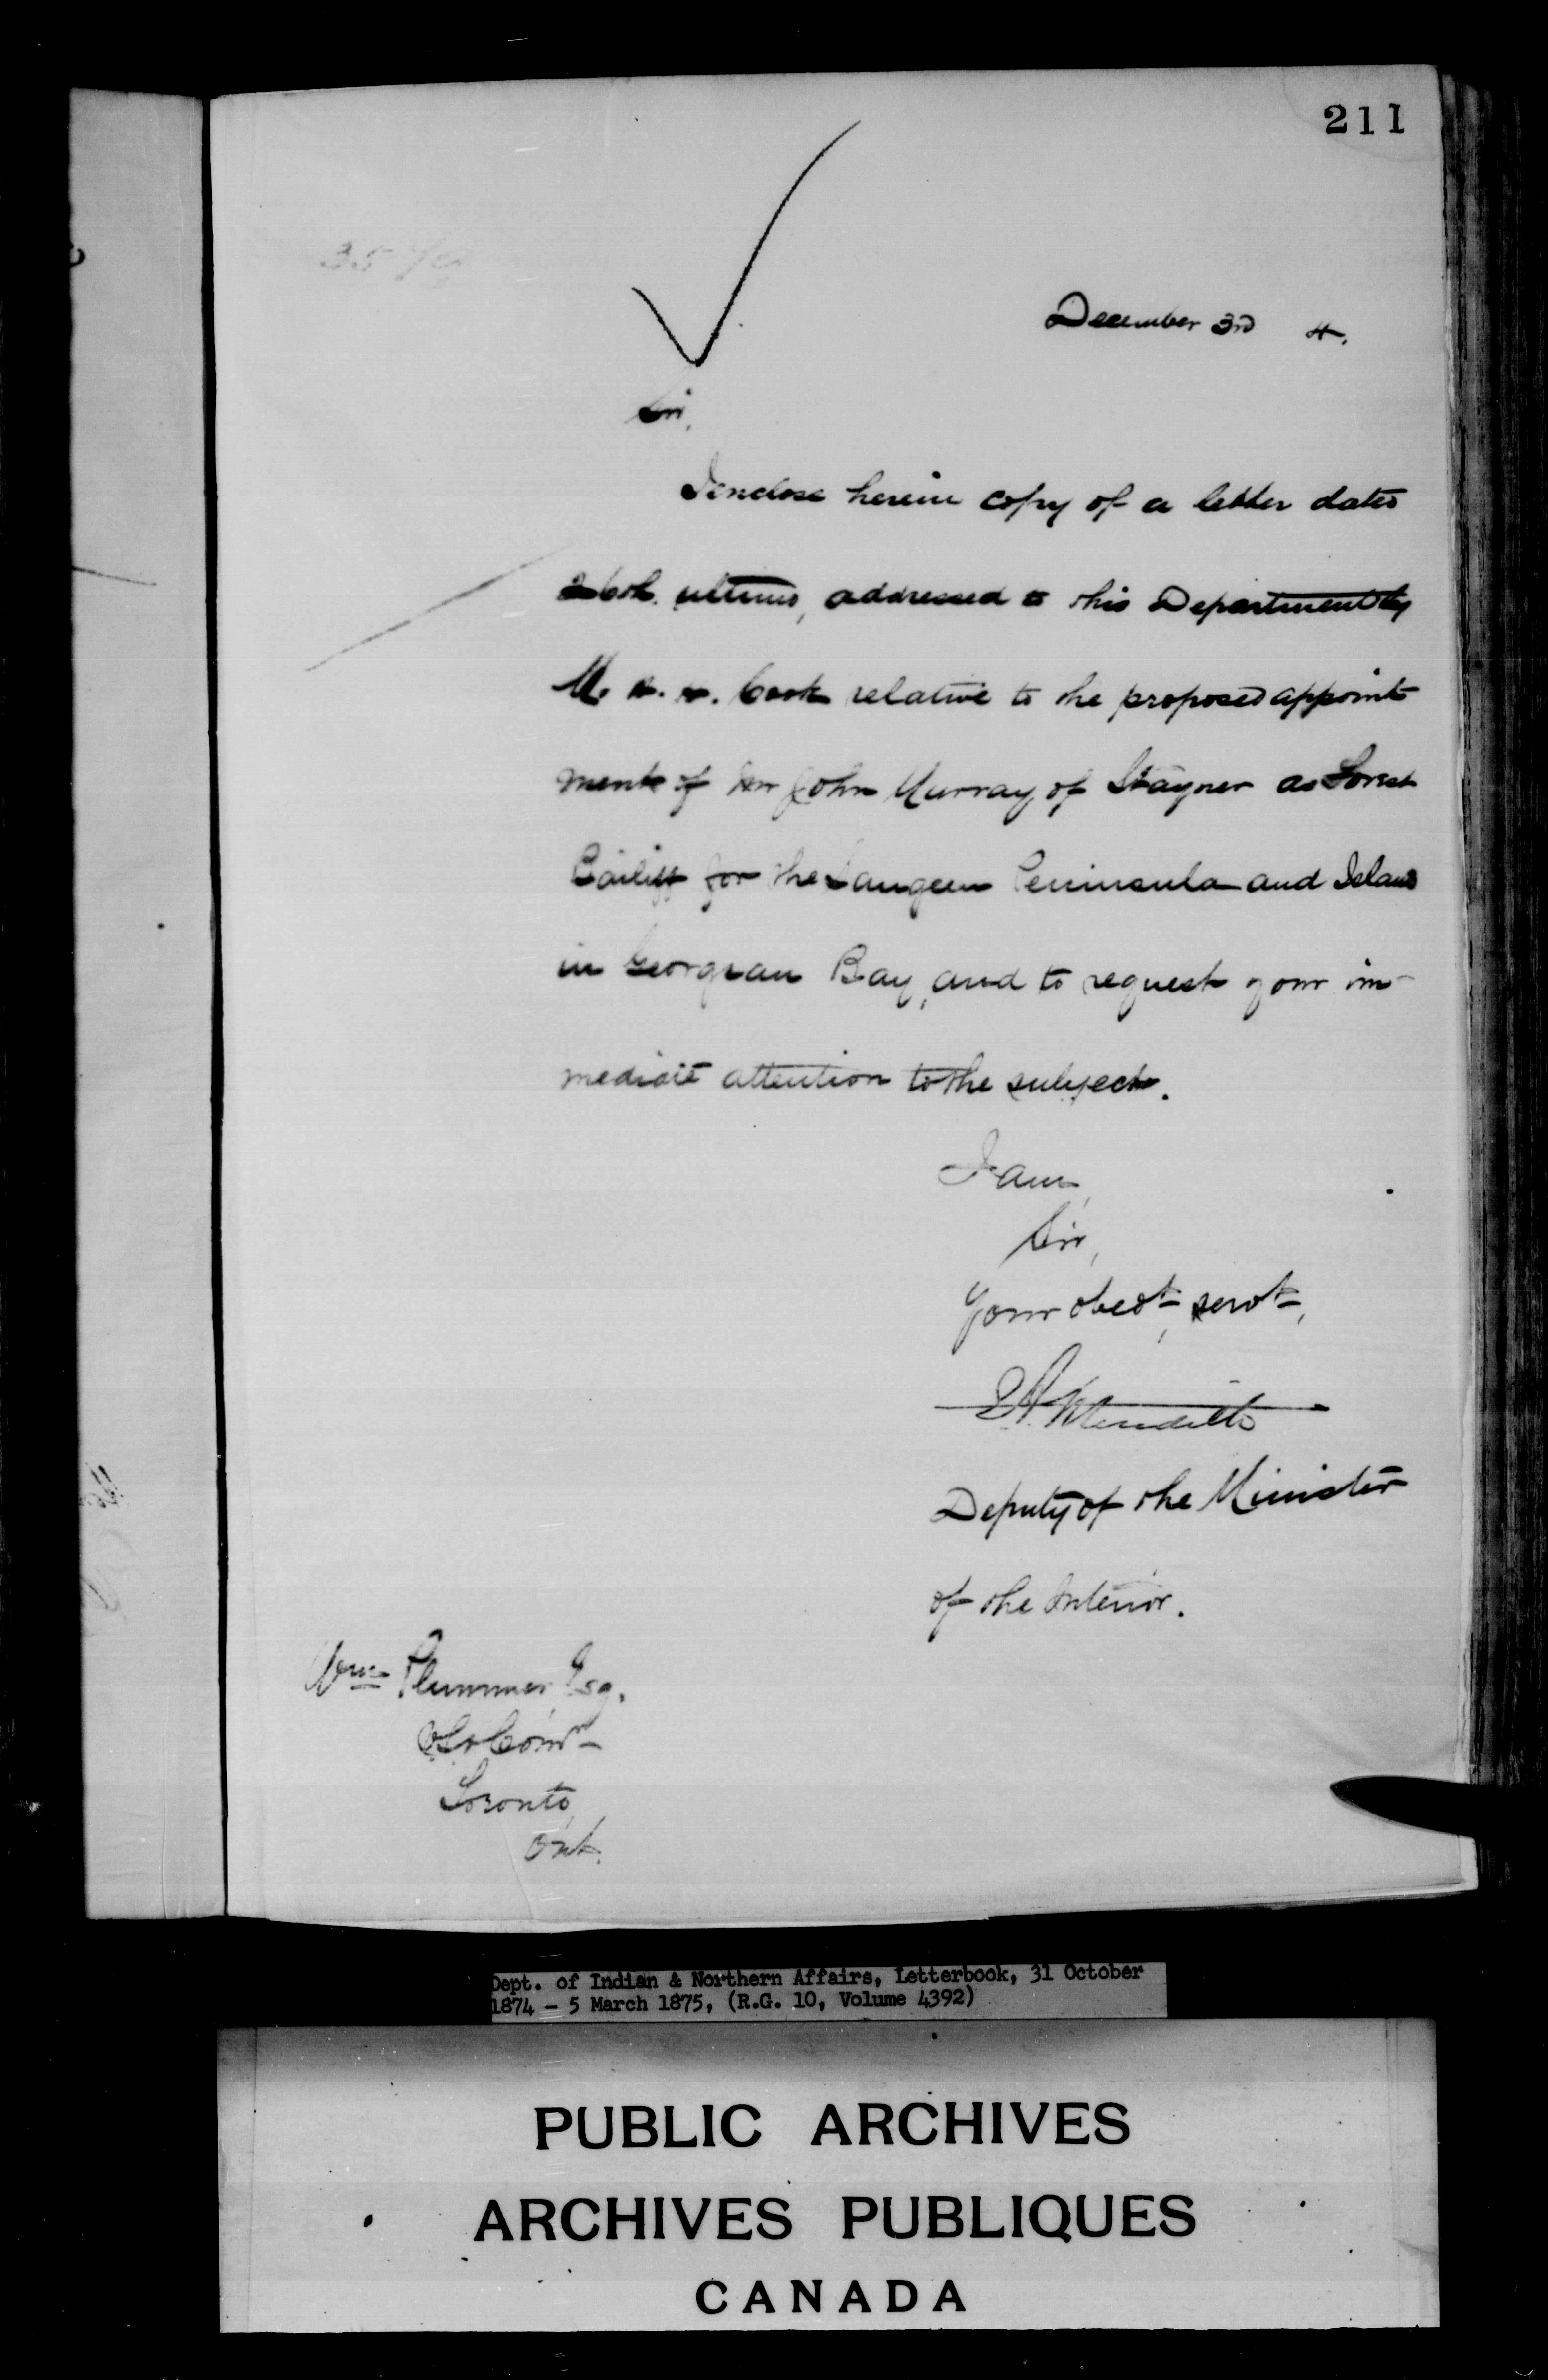 211
3579
December 3rd 4.
Sir,
I enclose herein copy of a letter dated
26th. ultimo, addressed to this Department by
M. H. H. Cook relative to the proposed appoint
ment of Mr John Murray of Stayner as Forest
Bailiff for the Saugeen Peninsula and Islands
in Georgian Bay, and to request your im-
mediate attention to the subject.
I am,
Sir,
Your obedt, servt,
EA Meredith
Deputy of the Minister
of the Interior.
Wm Plummer, Esq.
Toronto,
Ont.
Dept. of Indian & Northern Affairs, Letterbook, 31 October
1874 - 5 March 1875, (R.G. 10, Volume 4392)
PUBLIC ARCHIVES
ARCHIVES PUBLIQUES
CANADA